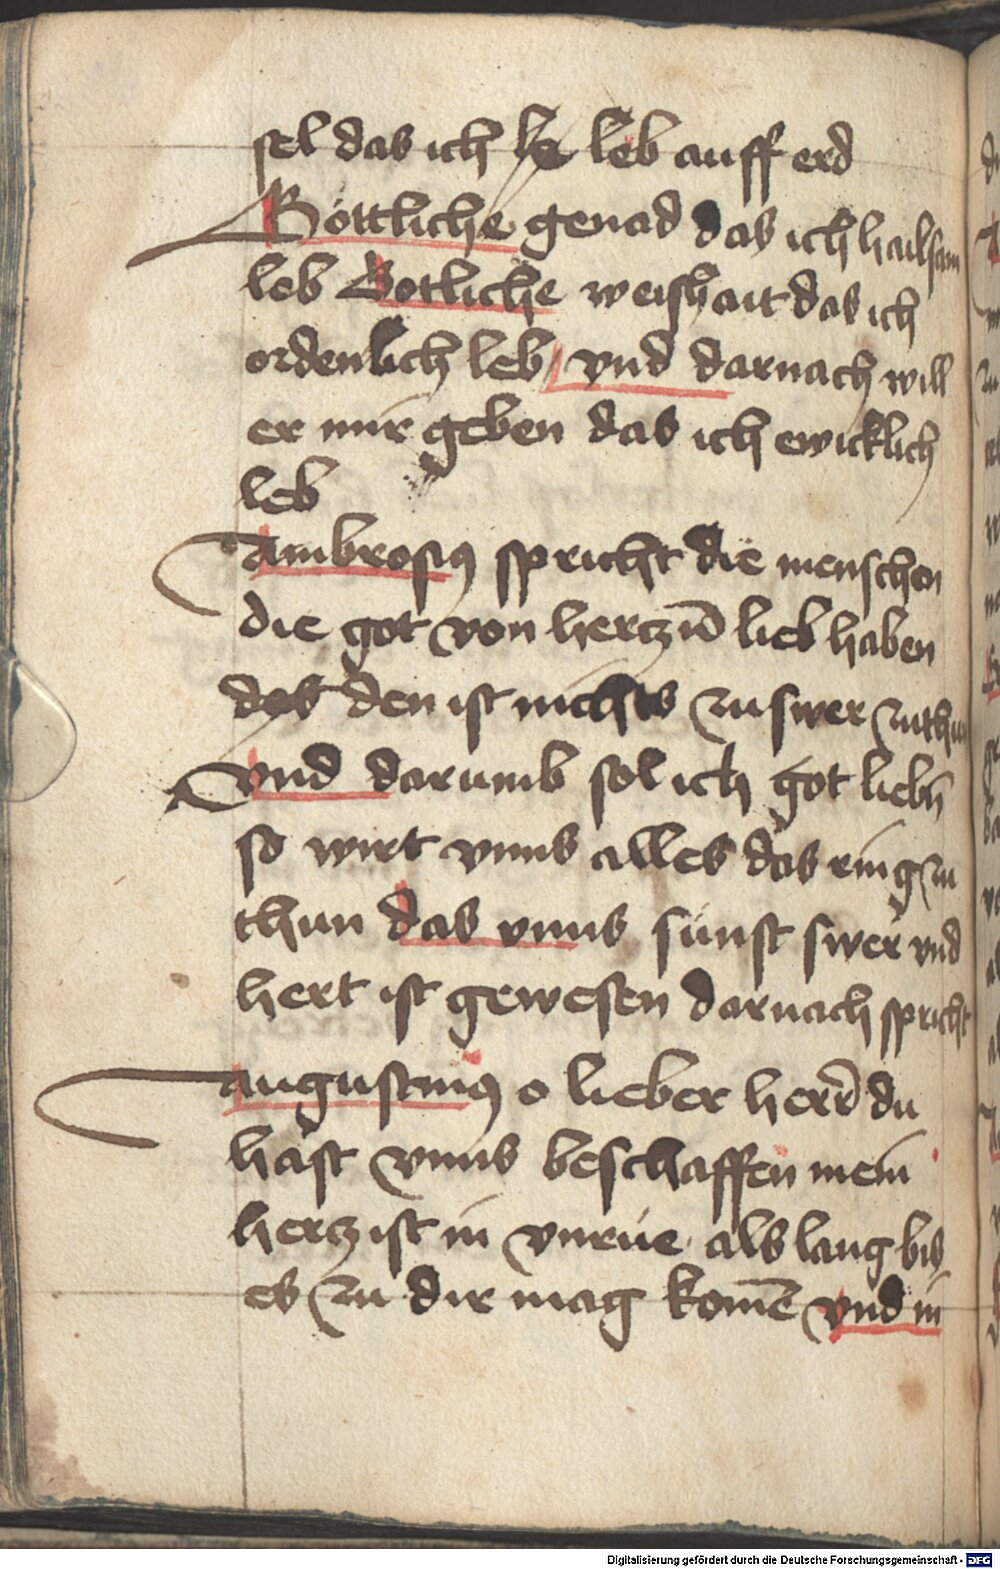 sel das ich leb auff erd
Göttliche genad das ich hailsam
leb Gotliche weishait das ich
ordenlich leb / vnd darnach will
er mir geben das ich ewicklich
leb
ambrosius spricht die menschen
die got von hertzn̄ lieb haben
das den ist nichts zu swer zuthun
vnd darumb sol ich got liebn̄
so wirt vnns alles das ring zu
thun das vnns sunst swer vnd
hert ist gewesen darnach spricht
augustinus o lieber herr̄ du
hast vnns beschaffen mein
hertz ist in vnrue als lang bis
es zu dir mag kom̄e vnd in
Digitalisierung gefördert durch die Deutsche Forschungsgemeinschaft - DFG